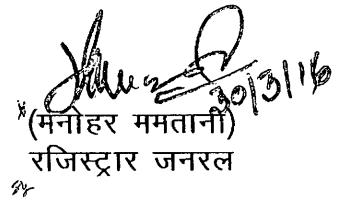 30/3/16
(मनोहर ममतानी)
रजिस्ट्रार जनरल